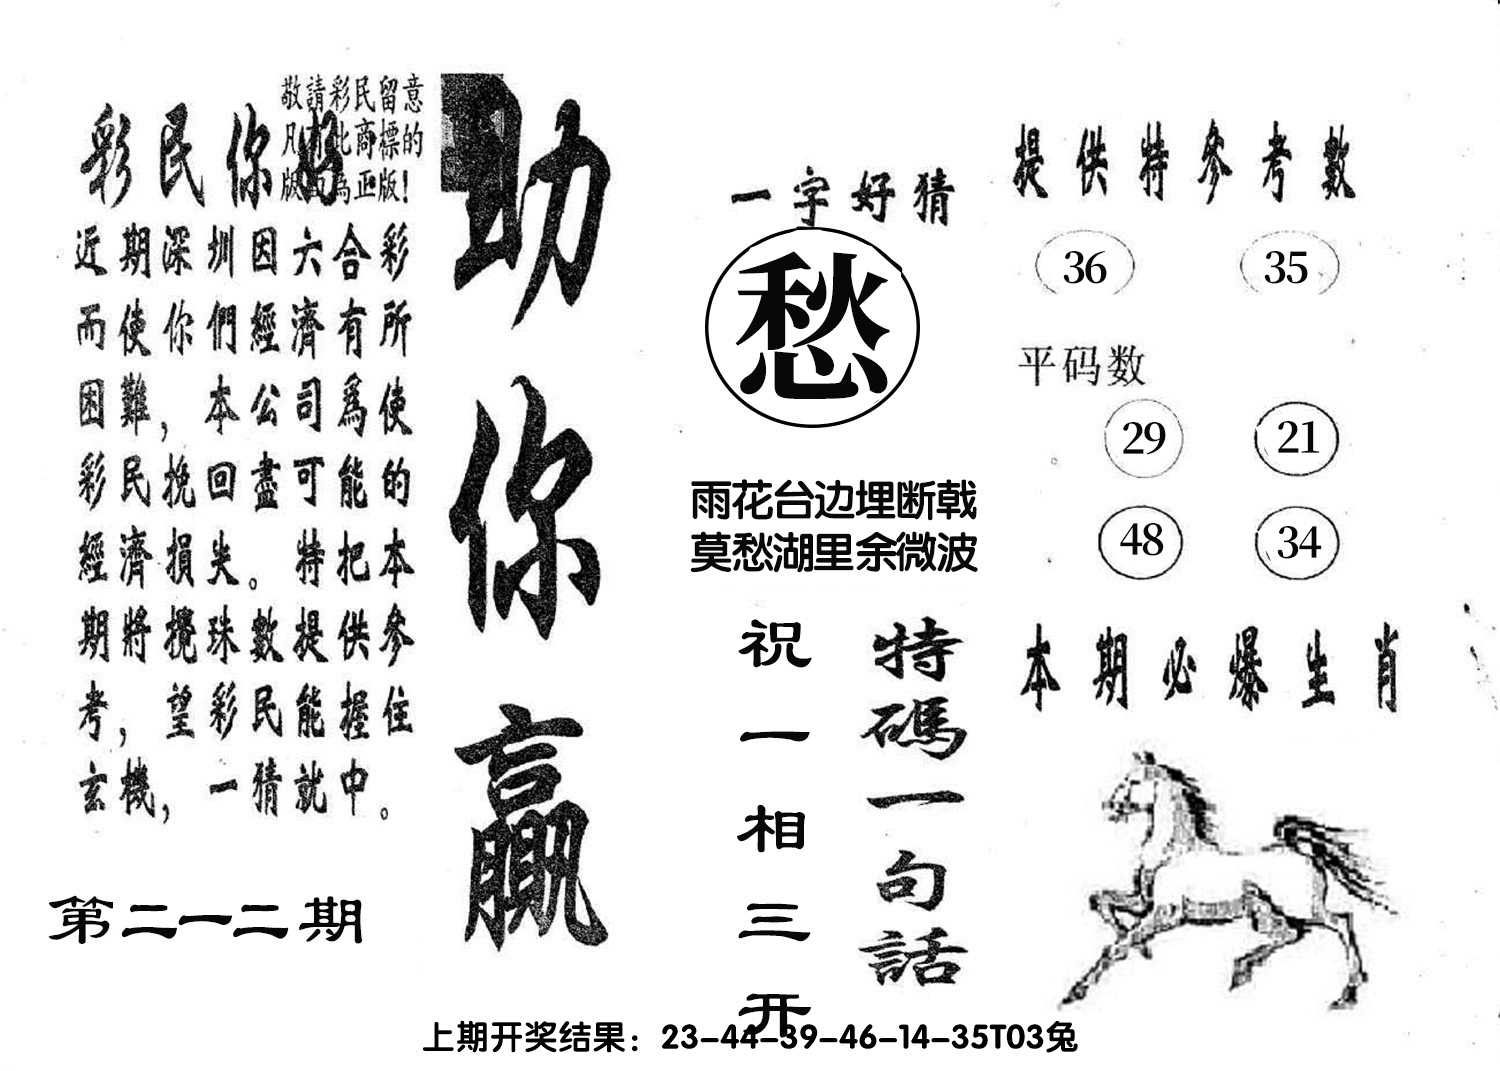 敬請彩民留意
凡有此商標的
版面為正版！
彩民你好
近期深圳因六合彩
而使你們經濟有所
困難，本公司爲使
彩民挽回盡可能的
經濟損失。特把本
期將攪珠數提供參
考，望彩民能握住
玄機，一猜就中。
第二一二期
助你贏
一字好猜
愁
雨花台边埋断戟
莫愁湖里余微波
特碼一句話
祝一相三开
提供特參考數
36 35
平码数
29 21
48 34
本期必爆生肖
上期开奖结果：23-44-39-46-14-35T03兔